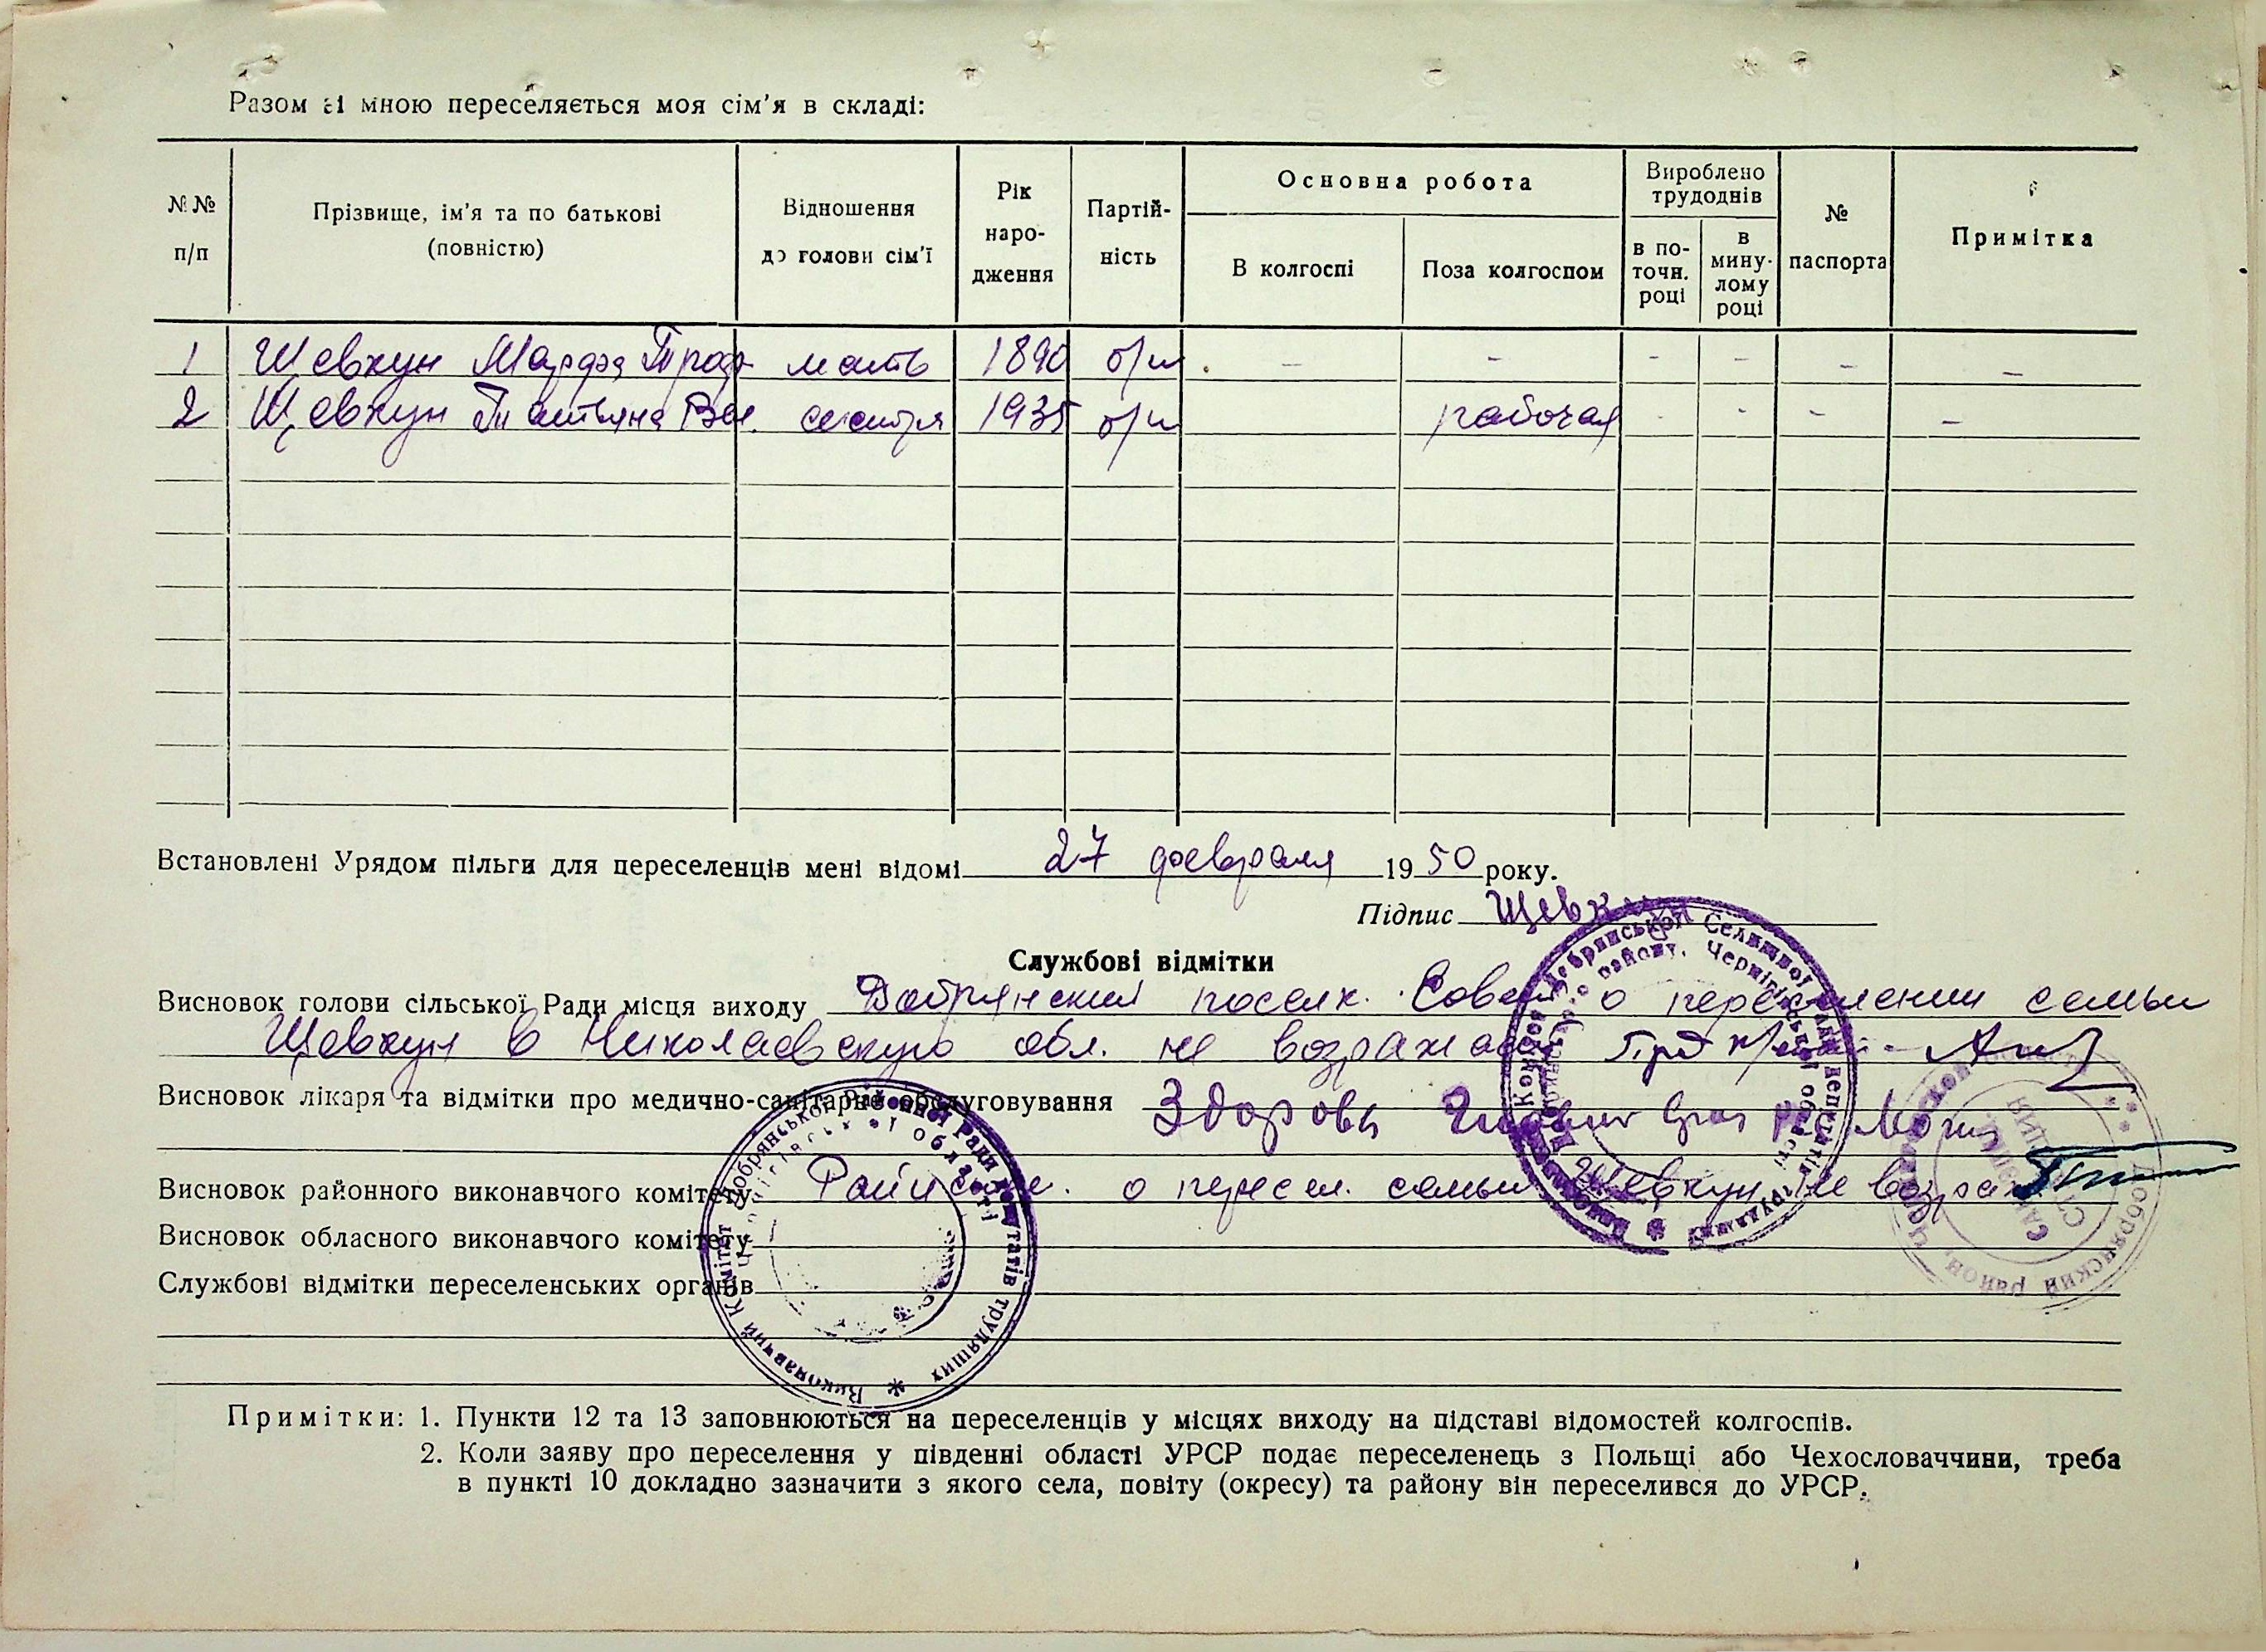 Разом зі мною переселяється моя сім'я в складі:
№№ п/п
Прізвище, ім'я та по батькові (повністю)
Відношення до голови сім'ї
Рік народження
Партійність
Основна робота
В колгоспі
Поза колгоспом
Вироблено трудоднів
в поточн. році
в минулому році
№ паспорта
Примітка
1 Щевкун Марфа Троф. мать 1890 б/п - - - - - -
2 Щевкун Татьяна Вас. сестра 1935 б/п рабочая - - - -
Встановлені Урядом пільги для переселенців мені відомі 27 февраля 1950 року.
Підпис Щевкун
Службові відмітки
Висновок голови сільської Ради місця виходу Добрянский поселк. Совет о переселении семьи
Щевкун в Николаевскую обл. не возражает Пред
Висновок лікаря та відмітки про медично-санітарне обслуговування Здоровы
Висновок районного виконавчого комітету о пересел. семьи Щевкун не возраж
Висновок обласного виконавчого комітету
Службові відмітки переселенських органів
Примітки: 1. Пункти 12 та 13 заповнюються на переселенців у місцях виходу на підставі відомостей колгоспів.
2. Коли заяву про переселення у південні області УРСР подає переселенець з Польщі або Чехословаччини, треба
в пункті 10 докладно зазначити з якого села, повіту (окресу) та району він переселився до УРСР.
Виконавчий Комітет Добрянської Районної Ради депутатів трудящих
Чернігівської області
Добрянської Селищної Ради депутатів трудящих
району, Чернігівської області
Добрянский район